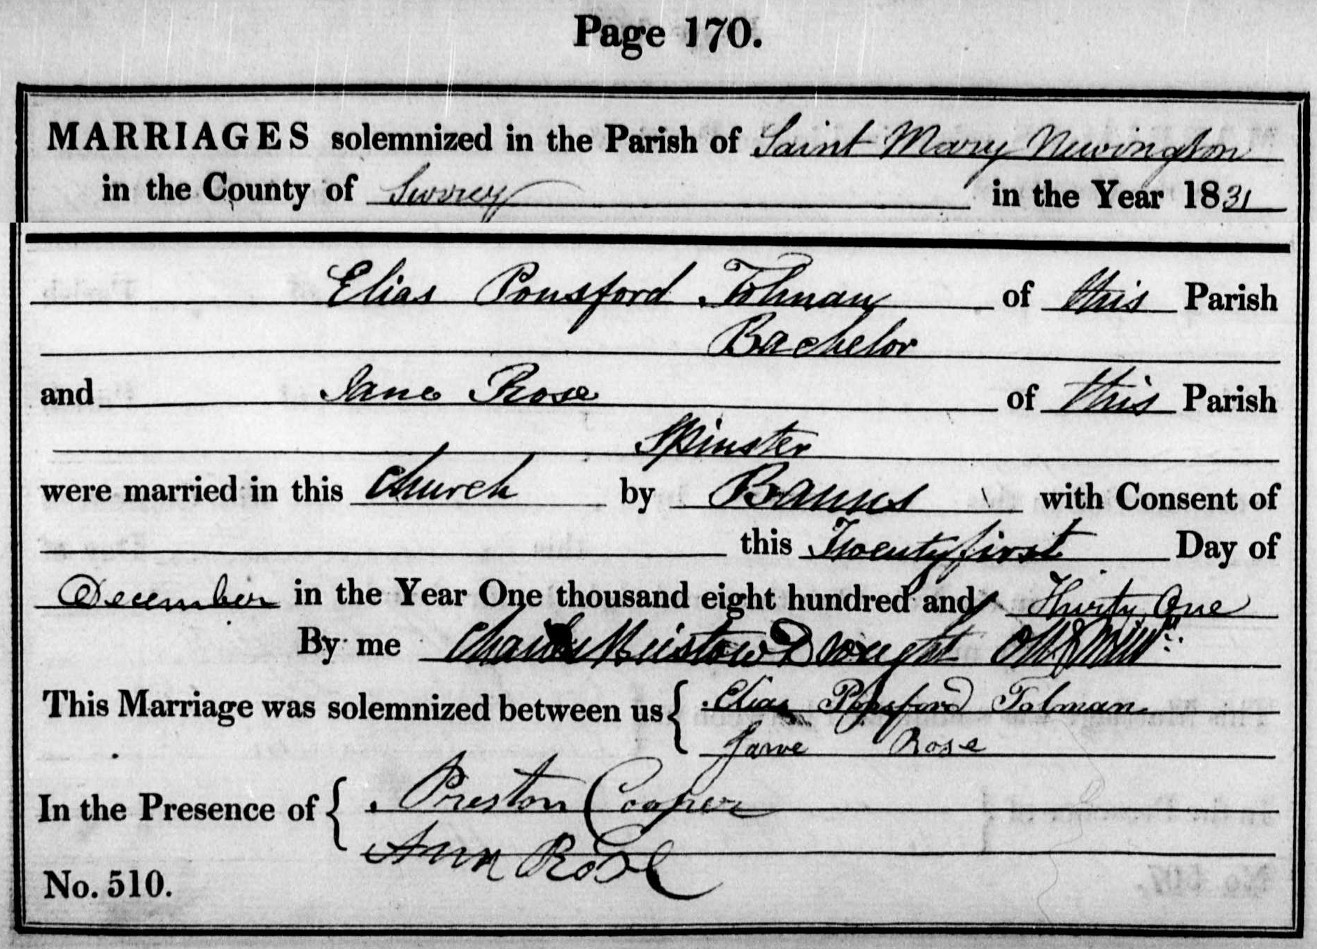 Page 170.
MARRIAGES solemnized in the Parish of Saint Mary Newington
in the County of Surrey in the Year 1831
Elias Ponsford Tolman of this Parish
Bachelor
and Jane Rose of this Parish
Spinster
were married in this Church by Banns with Consent of
this Twentyfirst Day of
December in the Year One thousand eight hundred and Thirty One
By me Charles
This Marriage was solemnized between us { Elias Ponsford Tolman
Jane Rose
In the Presence of { Preston Cooper
Ann Rose
No. 510.